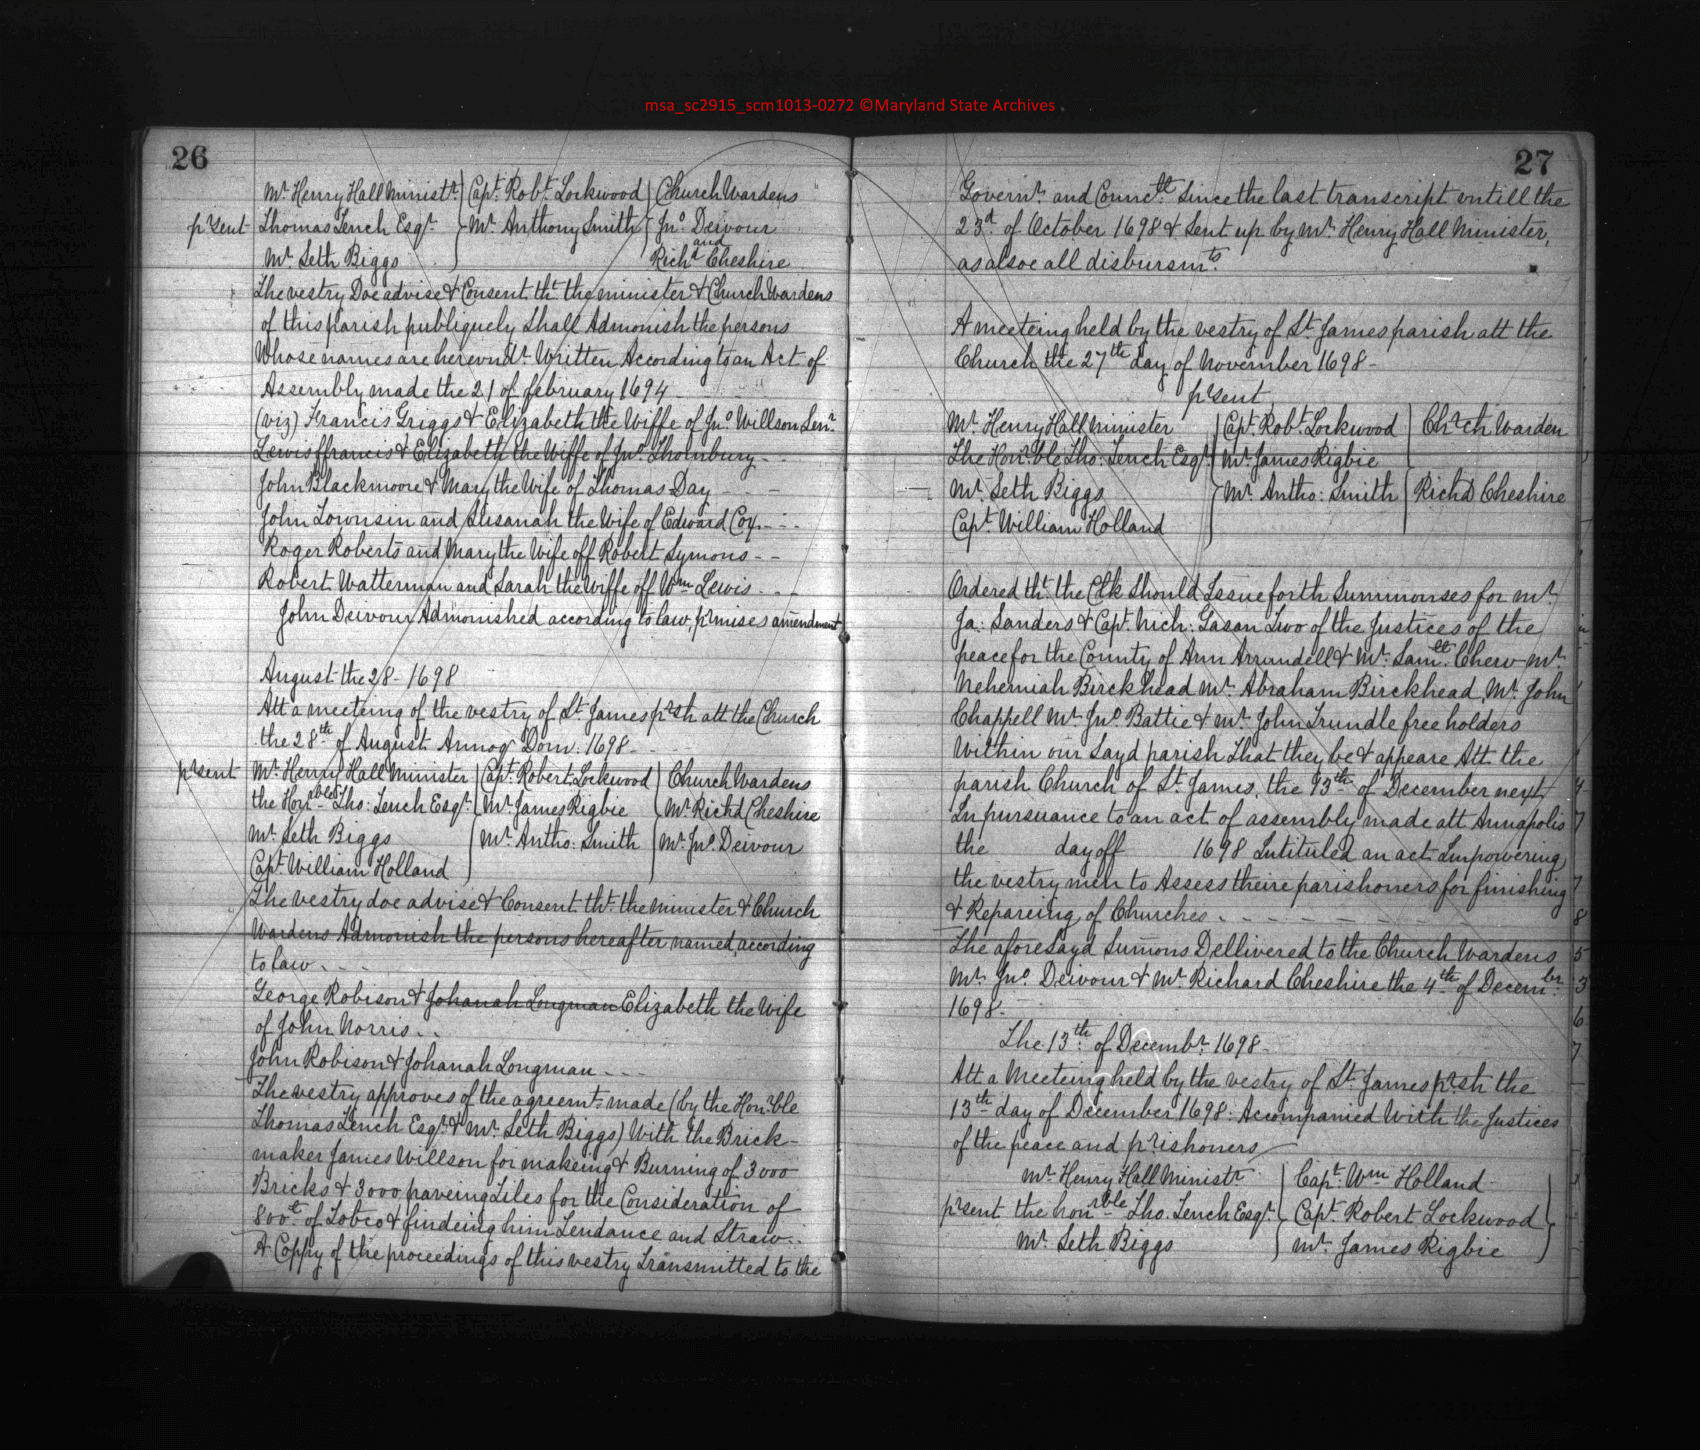 msa_sc2915_scm1013-0272 ©Maryland State Archives
26
Mr. Henry Hall Ministr. Capt. Robt. Lockwood Church Wardens
prsent Thomas Tench Esqr. Mr. Anthony Smith Jno. Deivour
and
Mr. Seth Biggs Richd Cheshire
The vestry Doe advise & Consent tht. the minister & Church Wardens
of this parish publiquely Shall Admonish the persons
Whose names are hereundr Written According to an Act of
Assembly made the 21 of february 1694
(viz) Francis Griggs & Elizabeth the Wiffe of Jno. Willson Senr.
Lewis ffrancis & Elizabeth the Wiffe of Jno. Thornbury - -
John Blackmoore & Mary the Wife of Thomas Day - - -
John Townsin and Susanah the Wife of Edward Cox - - -
Roger Roberts and Mary the Wife off Robert Symons - -
Robert Watterman and Sarah the Wiffe off Wm Lewis - - -
John Deivour Admonished according to law, prmises amendment
August the 28 - 1698
Att a meeteing of the vestry of St. James prsh att the Church
the 28th of August Annoq Dom: 1698 -
prsent Mr. Henry Hall Minister Capt. Robert Lockwood Church Wardens
the Honrble Tho: Tench Esqr. Mr. James Rigbie Mr. Richd Cheshire
Mr. Seth Biggs Mr. Antho: Smith Mr. Jno. Deivour
Capt. William Holland
The vestry doe advise & Consent tht. the minister & Church
Wardens Admonish the persons hereafter named, according
to law - - -
George Robison & Johanah Longman Elizabeth the Wife
of John Norris - -
John Robison & Johanah Longman - - -
The vestry approves of the agreemt. made (by the Honrble
Thomas Tench Esqr. & Mr. Seth Biggs) With the Brick -
maker James Willson for makeing & Burning of 3000
Bricks & 3000 paveing Tiles for the Consideration of
800 of Tobco & findeing him Tendance and Straw - -
A Coppy of the proceedings of this vestry Transmitted to the
27
Governr. and Since the last transcript untill the
23d. of October 1698 & Sent up by Mr. Henry Hall Minister,
as alsoe all disbursmts.
A meeteing held by the vestry of St. James parish att the
Church the 27th day of November 1698 -
prsent
Mr. Henry Hall minister Capt. Robt. Lockwood Chrch Warden
The Honrble Tho: Tench Esqr. Mr. James Rigbie
Mr. Seth Biggs Mr. Antho: Smith Richd Cheshire
Capt. William Holland
Ordered tht. the Clk Should Issue forth Summonses for Mr.
Ja: Sanders & Capt. Nich: Gasan Two of the Justices of the
peace for the County of Ann Arrundell & Mr. Samll. Chew Mr.
Nehemiah Birckhead Mr. Abraham Birckhead, Mr. John
Chappell Mr. Jno. Battie & Mr. John Trundle free holders
Within our Sayd parish That they be & appeare Att the
parish Church of St. James, the 13th of December next,
In pursuance to an act of assembly made att Annapolis
the day off 1698 Intituled an act Impowering
the vestry men to Assess theire parishoners for finishing
& Repareing of Churches - - - - - -
The aforesayd Sumons Dellivered to the Church Wardens
Mr. Jno. Deivour & Mr. Richard Cheshire the 4th of Decembr.
1698.
The 13th of Decembr. 1698 -
Att a Meeteing held by the vestry of St. James prsh the
13th day of December 1698: Accompanied With the Justices
of the peace and prishoners
Mr. Henry Hall Ministr. Capt. Wm Holland
prsent the honrble Tho. Tench Esqr. Capt. Robert Lockwood
Mr. Seth Biggs Mr. James Rigbie